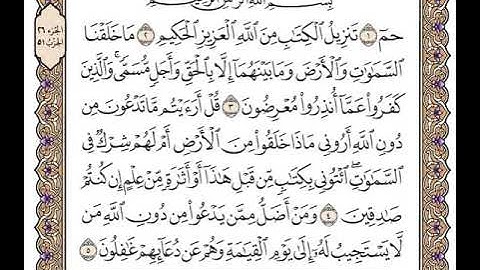 بِسْمِ ٱللَّهِ ٱلرَّحْمَٰنِ ٱلرَّحِيمِ
حمٓ ١ تَنزِيلُ ٱلْكِتَٰبِ مِنَ ٱللَّهِ ٱلْعَزِيزِ ٱلْحَكِيمِ ٢ مَا خَلَقْنَا
ٱلسَّمَٰوَٰتِ وَٱلْأَرْضَ وَمَا بَيْنَهُمَآ إِلَّا بِٱلْحَقِّ وَأَجَلٍ مُّسَمًّى ۚ وَٱلَّذِينَ
كَفَرُوا۟ عَمَّآ أُنذِرُوا۟ مُعْرِضُونَ ٣ قُلْ أَرَءَيْتُم مَّا تَدْعُونَ مِن
دُونِ ٱللَّهِ أَرُونِى مَاذَا خَلَقُوا۟ مِنَ ٱلْأَرْضِ أَمْ لَهُمْ شِرْكٌ فِى
ٱلسَّمَٰوَٰتِ ۖ ٱئْتُونِى بِكِتَٰبٍ مِّن قَبْلِ هَٰذَآ أَوْ أَثَٰرَةٍ مِّنْ عِلْمٍ إِن كُنتُمْ
صَٰدِقِينَ ٤ وَمَنْ أَضَلُّ مِمَّن يَدْعُوا۟ مِن دُونِ ٱللَّهِ مَن
لَّا يَسْتَجِيبُ لَهُۥٓ إِلَىٰ يَوْمِ ٱلْقِيَٰمَةِ وَهُمْ عَن دُعَآئِهِمْ غَٰفِلُونَ ٥
الجزء ٢٦
الحزب ٥١